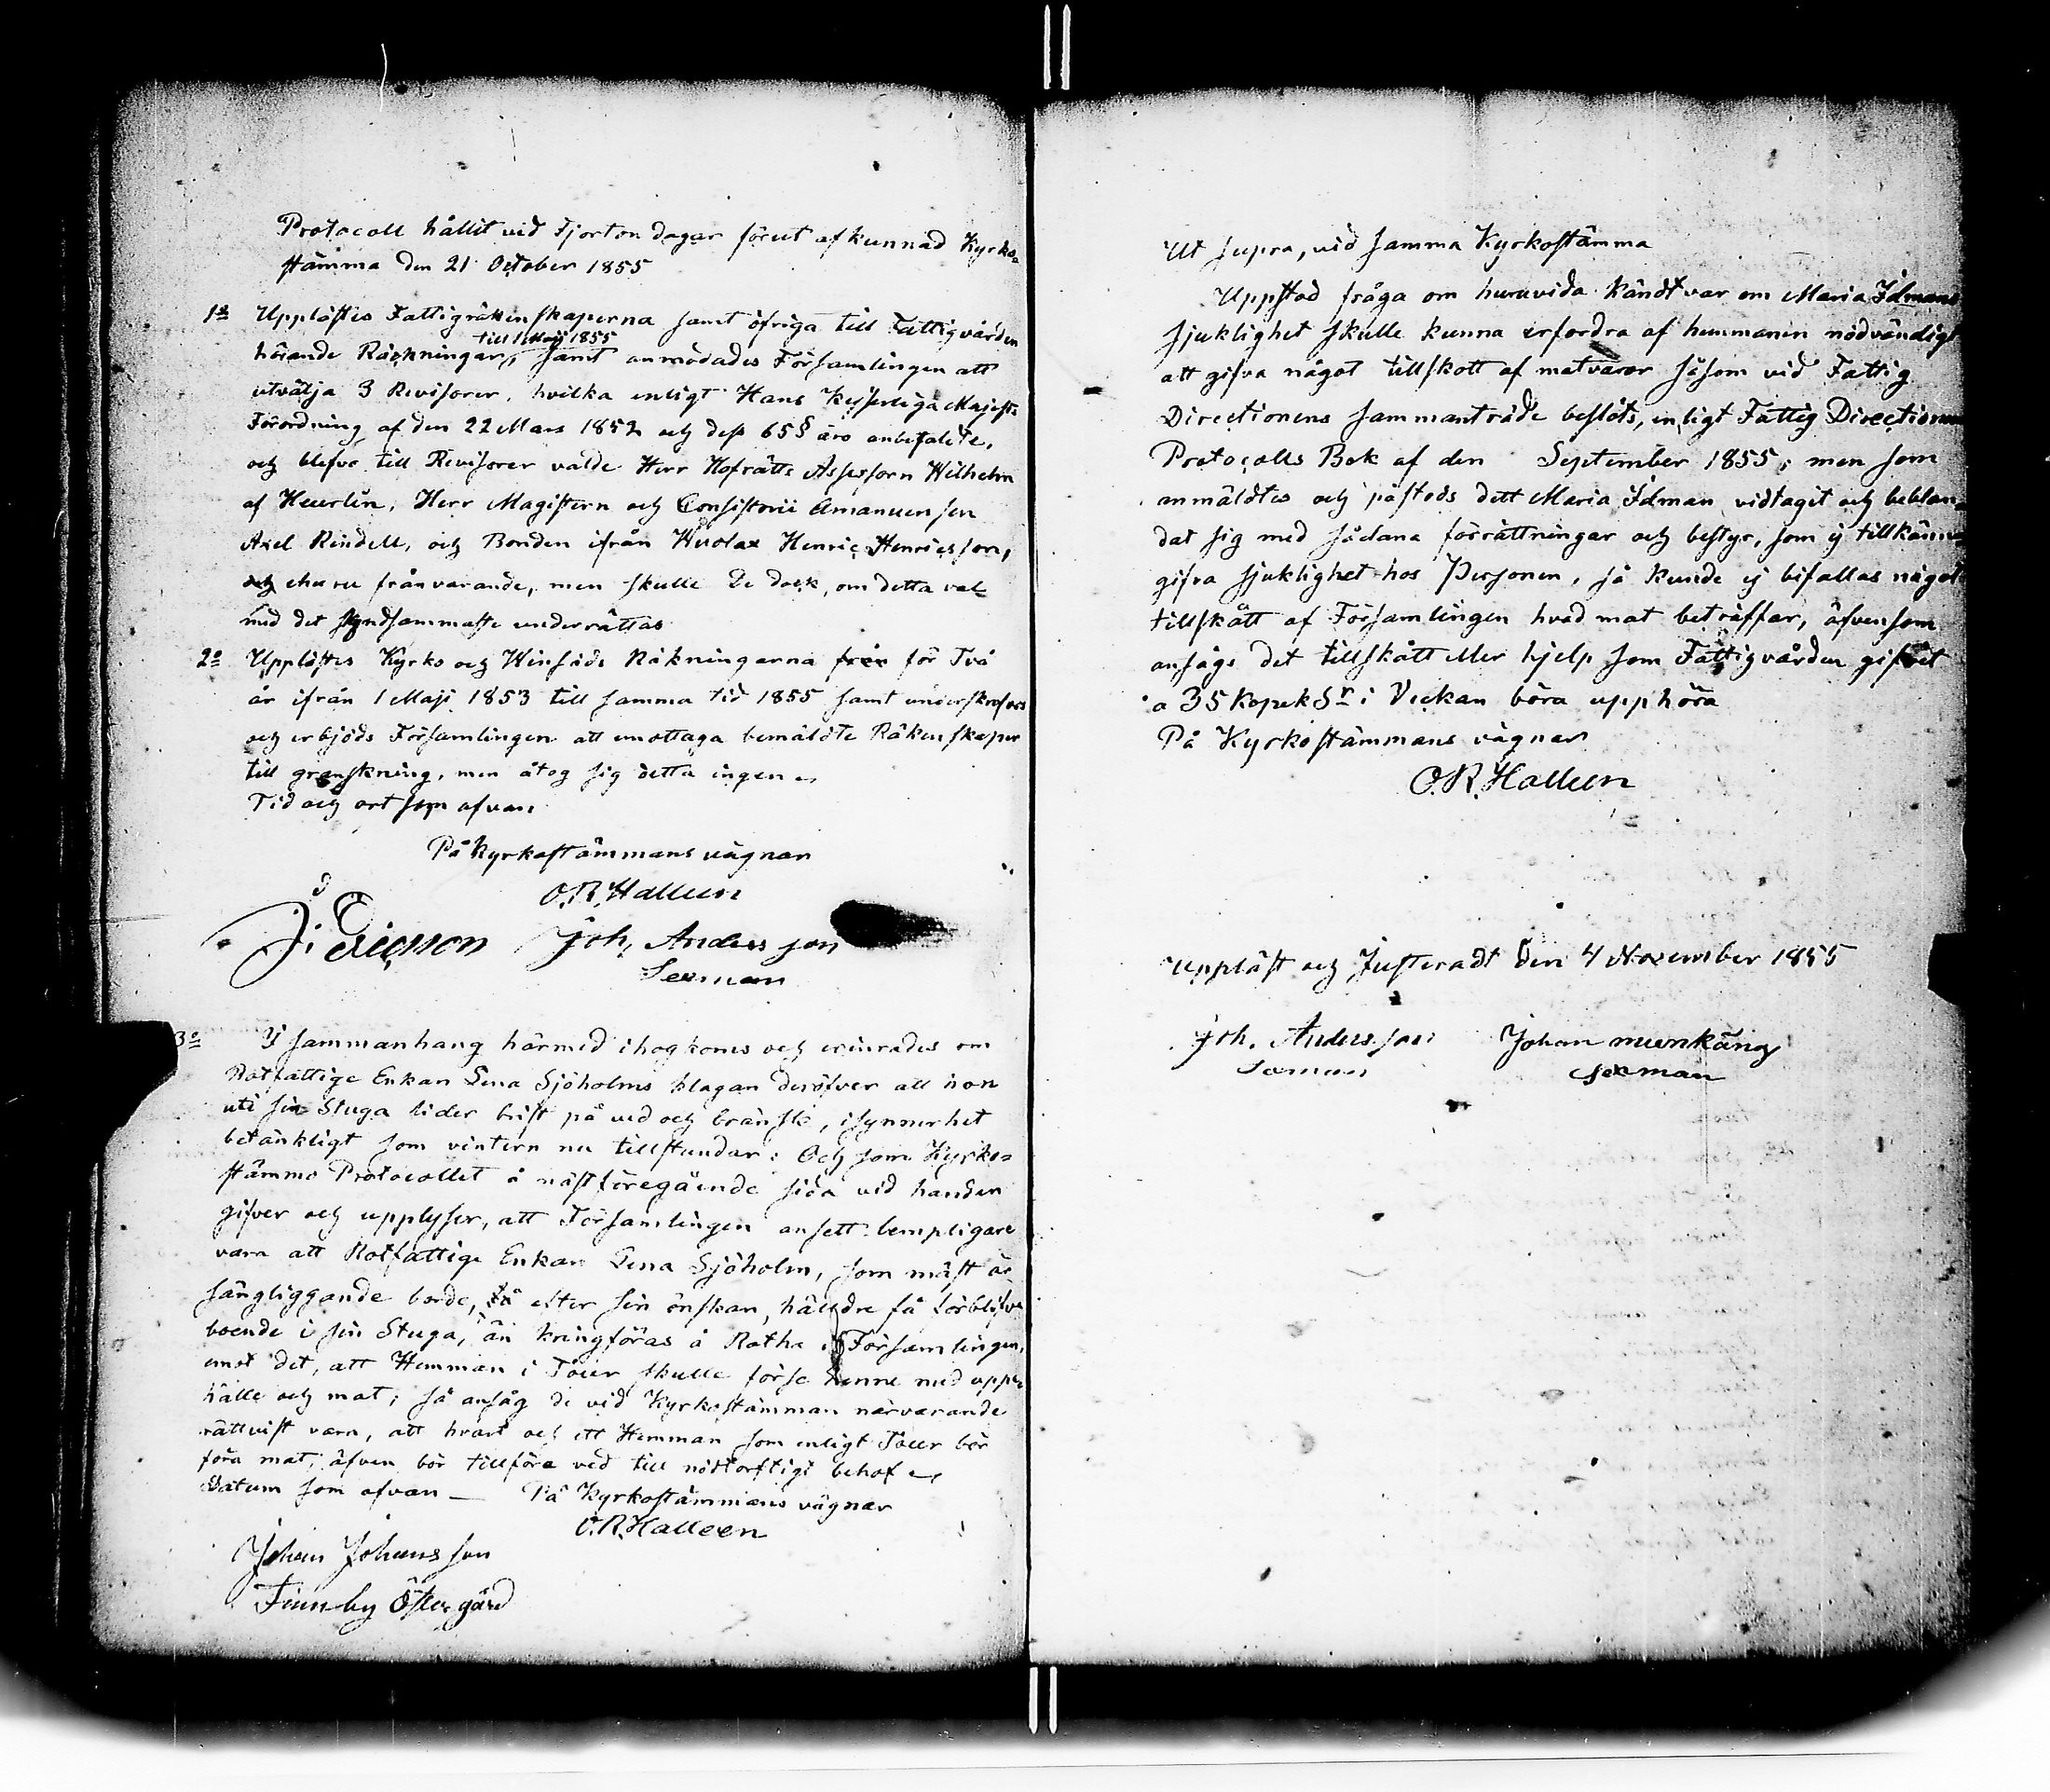 Protocoll hållit vid Fjorton dagar förut afkunnad Kyrko-
stämma den 21 October 1855
1o Upplästes Fattigräkenskaperna samt öfriga till Fattigvården
till 1 Maji 1855
hörande Räkningar, samt anmodades Församlingen att
utvälja 3 Revisorer, hvilka enligt Hans Kejserliga Majests
Förordning af den 22 Mars 1852 och dess 65 § äro anbefalde,
och blefvo till Revisorer valde Herr Hofrätts Assessorn Wilhelm
af Heurlin, Herr Magistern och Consistorii Amanuensen
Axel Rindell, och Bonden ifrån Henric Henricsson,
ehuru frånvarande, men skulle de dock, om detta val
med det skyndsammaste underrättas
2o Upplästes Kyrko och Winsäds Räkningarna för Två
år ifrån 1 Maji 1853 till samma tid 1855 samt underskrefvos
och erbjöds Församlingen att emottaga bemäldte Räkenskaper
till granskning, men åtog sig detta ingen
Tid och ort som ofvan.
På Kyrkostämmans vägnar
O.R. Halleen
J. Ericsson Joh. Andersson
Sexman
3o I sammanhang härmed ihogkoms och erinrades om
Rotfattige Enkan Lena Sjöholms klagan deröfver att hon
uti sin Stuga lider brist på ved och bränsle, isynnerhet
betänkligt som vintern nu tillstundar: Och som Kyrko-
stämmo Protocollet å nästföregående sida vid handen
gifver och upplyser, att Församlingen ansett lempligare
vara att Rotfattige Enkan Lena Sjöholm, som mäst är
sängliggande borde, efter sin önskan, hälldre få förblifva
boende i sin Stuga, än kringföras å Rotha i Församlingen,
emot det, att Hemman i Touer skulle förse henne med uppe-
hälle och mat; så ansåg de vid Kyrkostämman närvarande
rättvist vara, att hvart och ett Hemman som enligt Touer bör
föra mat, äfven bör tillföra ved till nödtorftigt behof
Datum som ofvan — På Kyrkostämmans vägnar
O.R. Halleen
Johan Johansson
Finnby Östergård
Ut supra, vid samma Kyrkostämma
Uppstod fråga om huruvida kändt var om Maria Idmans
sjuklighet skulle kunna erfordra af hemmanen nödvändigt
att gifva något tillskott af matvaror såsom vid Fattig
Directionens sammanträde beslöts, enligt Fattig Directionens
Protocolls Bok af den September 1855, men som
anmäldtes och påstods dett Maria Idman vidtagit och beblan-
dat sig med sådana förrättningar och bestyr, som ej tillkänna
gifva sjuklighet hos Personen, så kunde ej bifallas något
tillskått af Församlingen hvad mat beträffar, äfvensom
ansågs det tillskått eller hjelp som Fattigvården gifvit
a 35 kopek Sr i Veckan böra upphöra
På Kyrkostämmans vägnar
O.R. Halleen
Uppläst och Justeradt den 4 November 1855
Joh. Andersson Johan munkäng
Sexman sexman